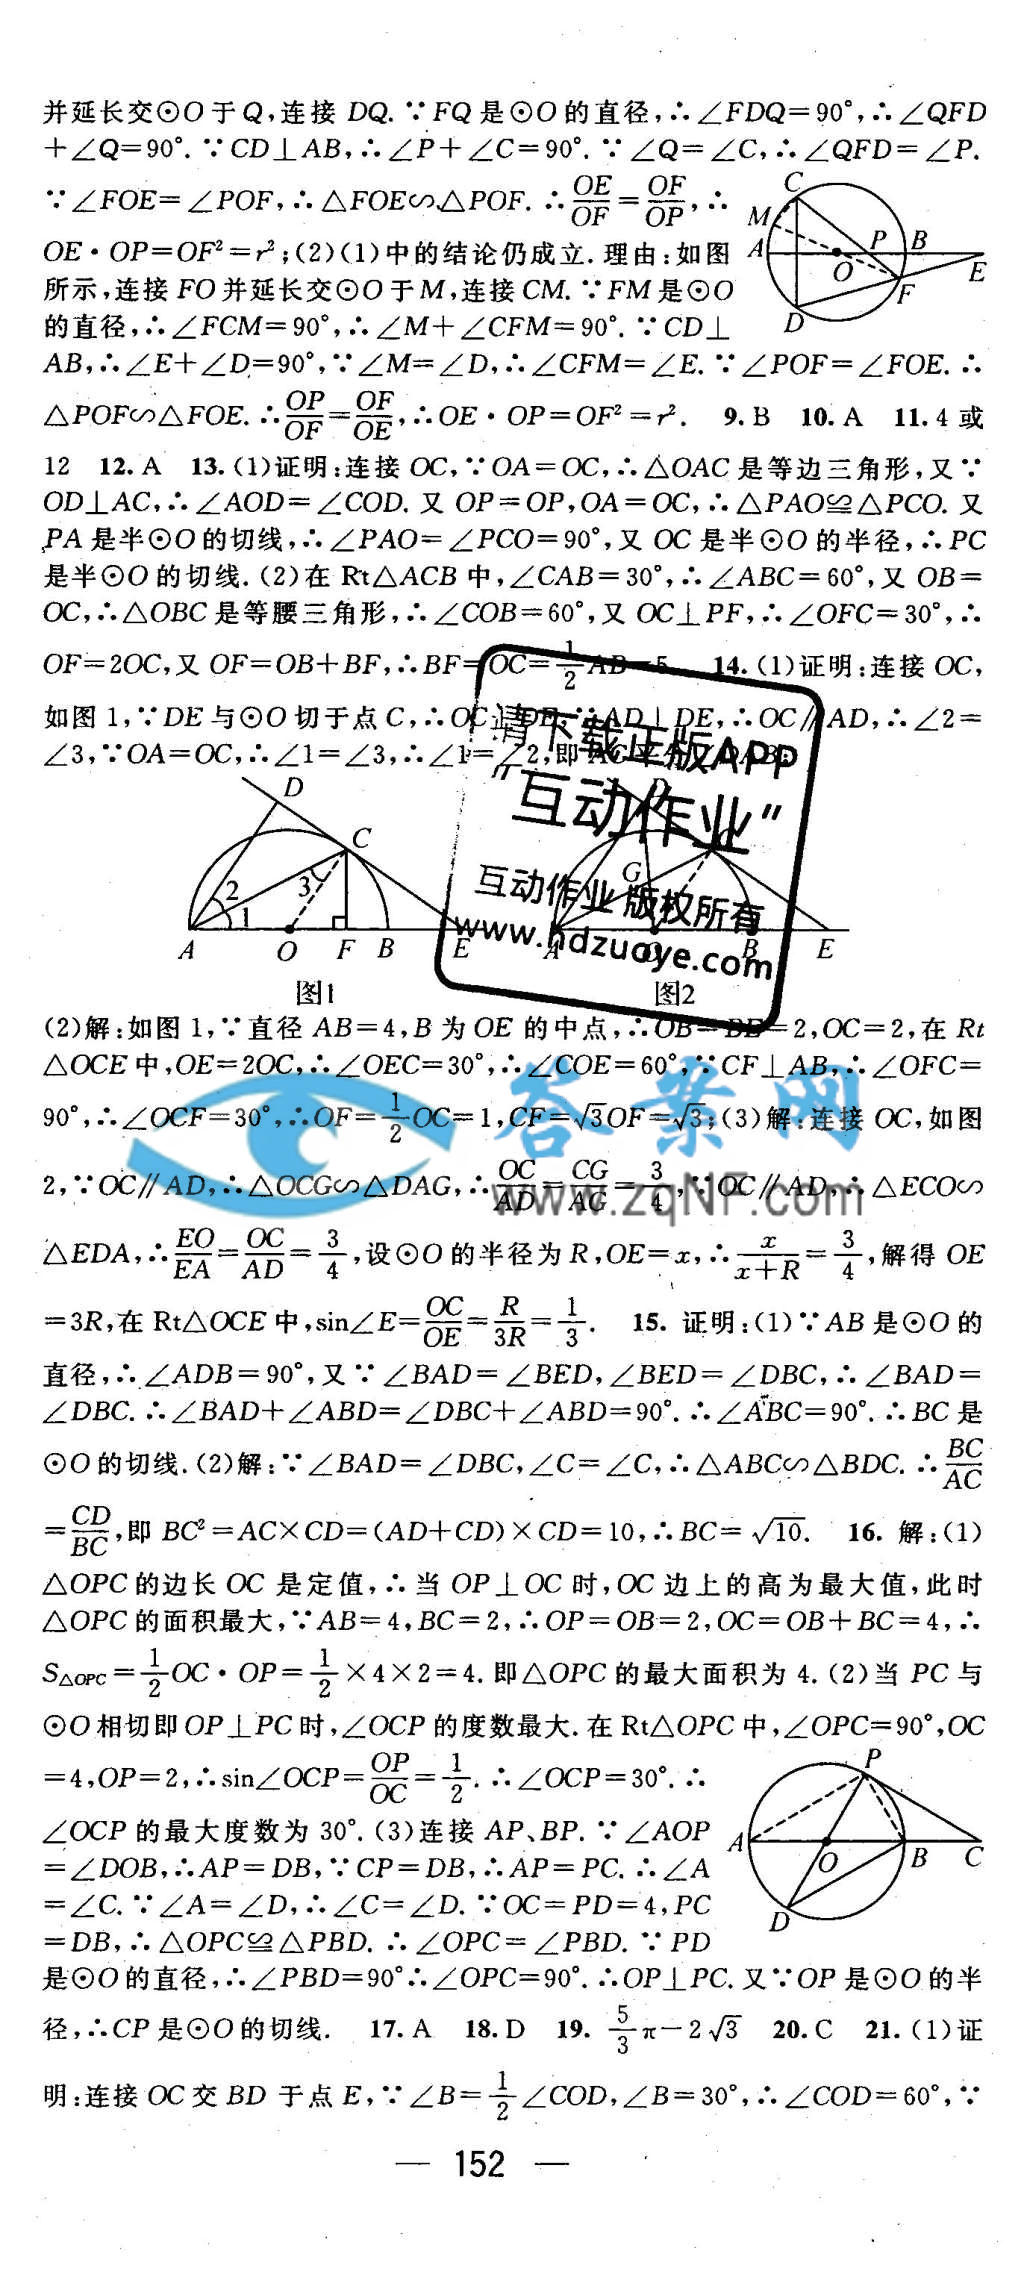 并延长交⊙O于Q,连接 DQ.∵FQ是⊙O的直径,∴∠FDQ=90°,∴∠QFD
+∠Q=90°.∵CD⊥AB,∴∠P+∠C=90°.∵∠Q=∠C,∴∠QFD=∠P.
∵∠FOE=∠POF,∴△FOE∽△POF.∴OE/OF=OF/OP,∴
OE·OP=OF²=r²;(2)(1)中的结论仍成立.理由:如图
所示,连接 FO并延长交⊙O于M,连接CM.∵FM是⊙O
的直径,∴∠FCM=90°,∴∠M+∠CFM=90°.∵CD⊥
AB,∴∠E+∠D=90°,∵∠M=∠D,∴∠CFM=∠E.∵∠POF=∠FOE.∴
C
M
A
P
B
O
E
F
D
△POF∽△FOE.∴OP/OF=OF/OE,∴OE·OP=OF²=r². 9.B 10.A 11.4或
12 12.A 13.(1)证明:连接OC,∵OA=OC,∴△OAC是等边三角形,又∵
OD⊥AC,∴∠AOD=∠COD.又 OP=OP,OA=OC,∴△PAO≌△PCO.又
PA是半⊙O的切线,∴∠PAO=∠PCO=90°,又 OC是半⊙O的半径,∴PC
是半⊙O的切线.(2)在Rt△ACB中,∠CAB=30°,∴∠ABC=60°,又 OB=
OC,∴△OBC是等腰三角形,∴∠COB=60°,又 OC⊥PF,∴∠OFC=30°,∴
OF=2OC,又 OF=OB+BF,∴BF=OC=1/2AB=5. 14.(1)证明:连接 OC,
如图1,∵DE与⊙O切于点C,∴OC⊥DE,∵AD⊥DE,∴OC∥AD,∴∠2=
∠3,∵OA=OC,∴∠1=∠3,∴∠1=∠2,即
请下载正版APP
"互动作业"
互动作业 版权所有
www.hdzuoye.com
D
C
2
1
3
A
O
F
B
E
图1
D
C
G
A
O
B
E
图2
(2)解:如图1,∵直径 AB=4,B为OE的中点,∴OB=BE=2,OC=2,在Rt
△OCE中,OE=2OC,∴∠OEC=30°,∴∠COE=60°,∵CF⊥AB,∴∠OFC=
90°,∴∠OCF=30°,∴OF=1/2OC=1,CF=√3OF=√3;(3)解:连接OC,如图
答案网
www.zqNF.com
2,∵OC∥AD,∴△OCG∽△DAG,∴OC/AD=CG/AG=3/4,∵OC∥AD,∴△ECO∽
△EDA,∴EO/EA=OC/AD=3/4,设⊙O的半径为R,OE=x,∴x/(x+R)=3/4,解得OE
=3R,在Rt△OCE中,sin∠E=OC/OE=R/3R=1/3. 15.证明:(1)∵AB是⊙O的
直径,∴∠ADB=90°,又∵∠BAD=∠BED,∠BED=∠DBC,∴∠BAD=
∠DBC.∴∠BAD+∠ABD=∠DBC+∠ABD=90°.∴∠ABC=90°.∴BC是
⊙O的切线.(2)解:∵∠BAD=∠DBC,∠C=∠C,∴△ABC∽△BDC.∴BC/AC
=CD/BC,即BC²=AC×CD=(AD+CD)×CD=10,∴BC=√10. 16.解:(1)
△OPC的边长OC是定值,∴当OP⊥OC时,OC边上的高为最大值,此时
△OPC的面积最大,∵AB=4,BC=2,∴OP=OB=2,OC=OB+BC=4,∴
S△OPC=1/2OC·OP=1/2×4×2=4.即△OPC的最大面积为4.(2)当PC与
⊙O相切即OP⊥PC时,∠OCP的度数最大.在Rt△OPC中,∠OPC=90°,OC
=4,OP=2,∴sin∠OCP=OP/OC=1/2.∴∠OCP=30°.∴
∠OCP的最大度数为30°.(3)连接AP、BP.∵∠AOP
=∠DOB,∴AP=DB,∵CP=DB,∴AP=PC.∴∠A
=∠C.∵∠A=∠D,∴∠C=∠D.∵OC=PD=4,PC
=DB,∴△OPC≌△PBD.∴∠OPC=∠PBD.∵PD
P
A
O
B
C
D
是⊙O的直径,∴∠PBD=90°∴∠OPC=90°.∴OP⊥PC.又∵OP是⊙O的半
径,∴CP是⊙O的切线. 17.A 18.D 19.5/3π-2√3 20.C 21.(1)证
明:连接OC交BD于点E,∵∠B=1/2∠COD,∠B=30°,∴∠COD=60°,∵
— 152 —